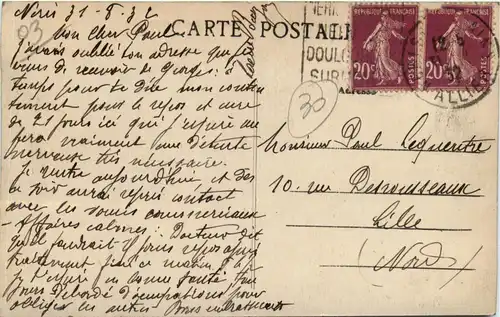 Néris 31-8-32
Mon cher Paul
J'avais oublié ton adresse que
viens de recevoir de Georges : à
temps pour te dire mon conten
tement pour le repos et cure
de 21 jours ici qui j'espère me
fera vraiment une détente
nerveuse très nécessaire.
Je rentre aujourd'hui et dès
ce soir aurai repris contact
avec les soucis commerciaux
- Affaires calmes : Docteur dit
qu'il faudrait 8 jours repos après
traitement, j'ai ce matin
J'espère en bonne santé
jours débordé d'occupations pour
obliger les autres. Bons embrassements
CARTE POSTALE
DOULO
SUR
Adresse
REPUBLIQUE FRANÇAISE
20c
POSTES
REPUBLIQUE FRANÇAISE
20c
POSTES
32
ALLIE
03
30
Monsieur Paul Lequentre
10. rue Desrousseaux
Lille
(Nord)